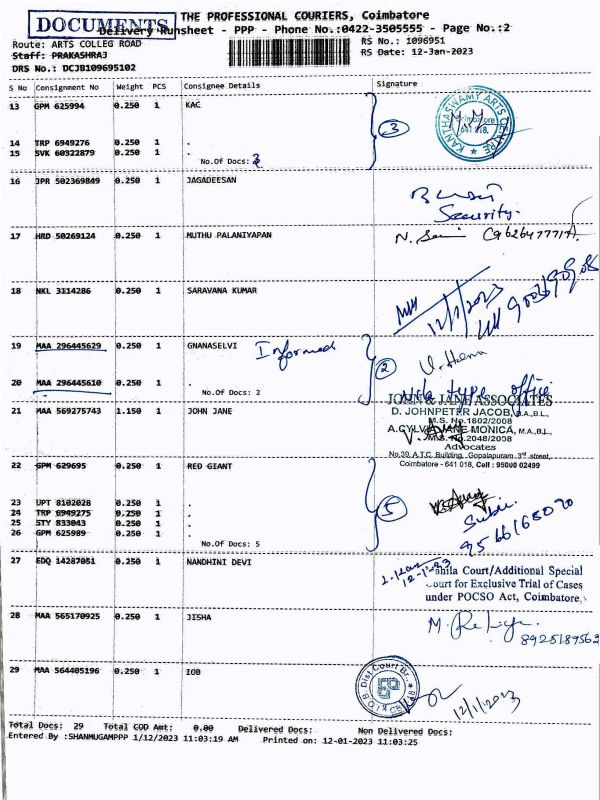 DOCUMENTS
THE PROFESSIONAL COURIERS, Coimbatore
Delivery Runsheet - PPP - Phone No:0422-3505555 - Page No.:2
Route: ARTS COLLEG ROAD
RS No.: 1096951
Staff: PRAKASHRAJ
RS Date: 12-Jan-2023
DRS No.: DCJB109695102
S No Consignment No Weight PCS Consignee Details Signature
13 GPM 625994 0.250 1 KAC
3
KANTHASWAMY ARTS CENTRE
Coimbatore
641 018.
14 TRP 6949276 0.250 1 .
15 SVK 60322879 0.250 1 .
No.Of Docs: 3
16 JPR 502369849 0.250 1 JAGADEESAN
Security.
17 HRD 50269124 0.250 1 MUTHU PALANIYAPAN
18 NKL 3114286 0.250 1 SARAVANA KUMAR
12/1/2023
19 MAA 296445629 0.250 1 GNANASELVI Informed
2
20 MAA 296445610 0.250 1 .
No.Of Docs: 2
type office
JOHN & JANE ASSOCIATES
21 MAA 569275743 1.150 1 JOHN JANE
D. JOHNPETER JACOB, B.A.,B.L.,
M.S. No.1802/2008
A.CYLVIA JANE MONICA, M.A.,B.L.,
M.S. No.2048/2008
Advocates
No.39, A.T.C. Building, Gopalapuram 3rd street,
Coimbatore - 641 018, Cell : 95000 02499
22 GPM 629695 0.250 1 RED GIANT
23 UPT 8102028 0.250 1 .
24 TRP 6949275 0.250 1 .
25 STY 833043 0.250 1 .
26 GPM 625989 0.250 1 .
No.Of Docs: 5
5
9566168020
27 EDQ 14287051 0.250 1 NANDHINI DEVI
12-1-23
Mahila Court/Additional Special
Court for Exclusive Trial of Cases
under POCSO Act, Coimbatore,
28 MAA 565170925 0.250 1 JISHA
8925189562
29 MAA 564405196 0.250 1 IOB
12/1/2023
Total Docs: 29 Total COD Amt: 0.00 Delivered Docs: Non Delivered Docs:
Entered By :SHANMUGAMPPP 1/12/2023 11:03:19 AM Printed on: 12-01-2023 11:03:25